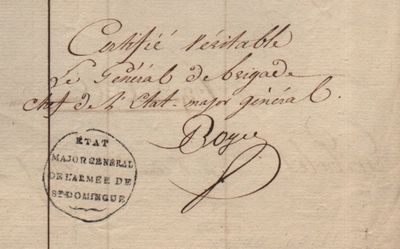 Certifié Véritable
Le Général de brigade
chef de l'Etat-major général.
Boyé
ETAT
MAJOR GENERAL
DE L'ARMÉE DE
St DOMINGUE